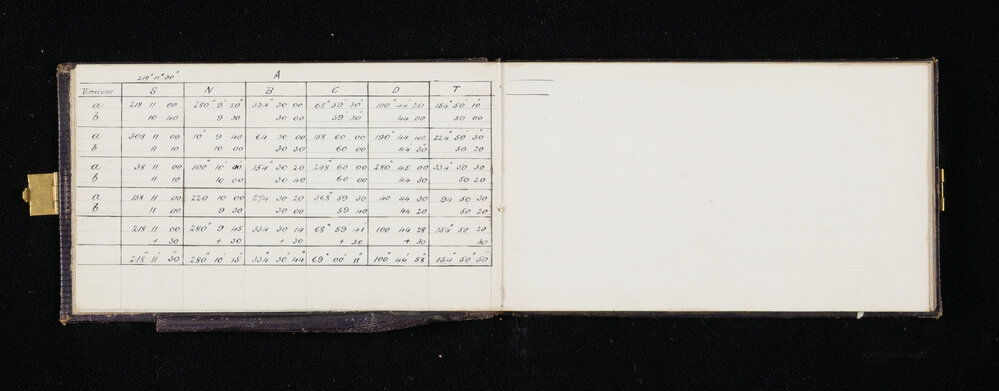 218° 11' 30" A
Verniers S N B C D T
a 218 11 00 280° 9' 20" 334° 30 00 68° 59' 30" 100° 44' 20 154° 50' 10"
b 10 40 9 30 30 00 59 30 44 00 50 00
a 308 11 00 10° 9 40 64 30 00 158 60 00 190° 44 40 224° 50 30
b 11 10 10 00 30 30 60 00 44 30 50 20
a 38 11 00 100° 10 00 154° 30 20 248° 60 00 280° 45 00 334° 50 30
b 11 10 10 00 30 40 60 00 44 30 50 20
a 158 11 00 220 10 00 274 30 20 368° 59 30 40 44 30 94 50 30
b 11 00 9 30 30 00 59 40 44 20 50 20
218 11 00 280° 9 45 334 30 14 68° 59 41" 100 44 28 154° 50 20
+ 30 + 30 + 30 + 30 + 30 30
218° 11' 30" 280° 10' 15" 334° 30' 44" 69° 00' 11" 100° 44' 58" 154° 50' 50"